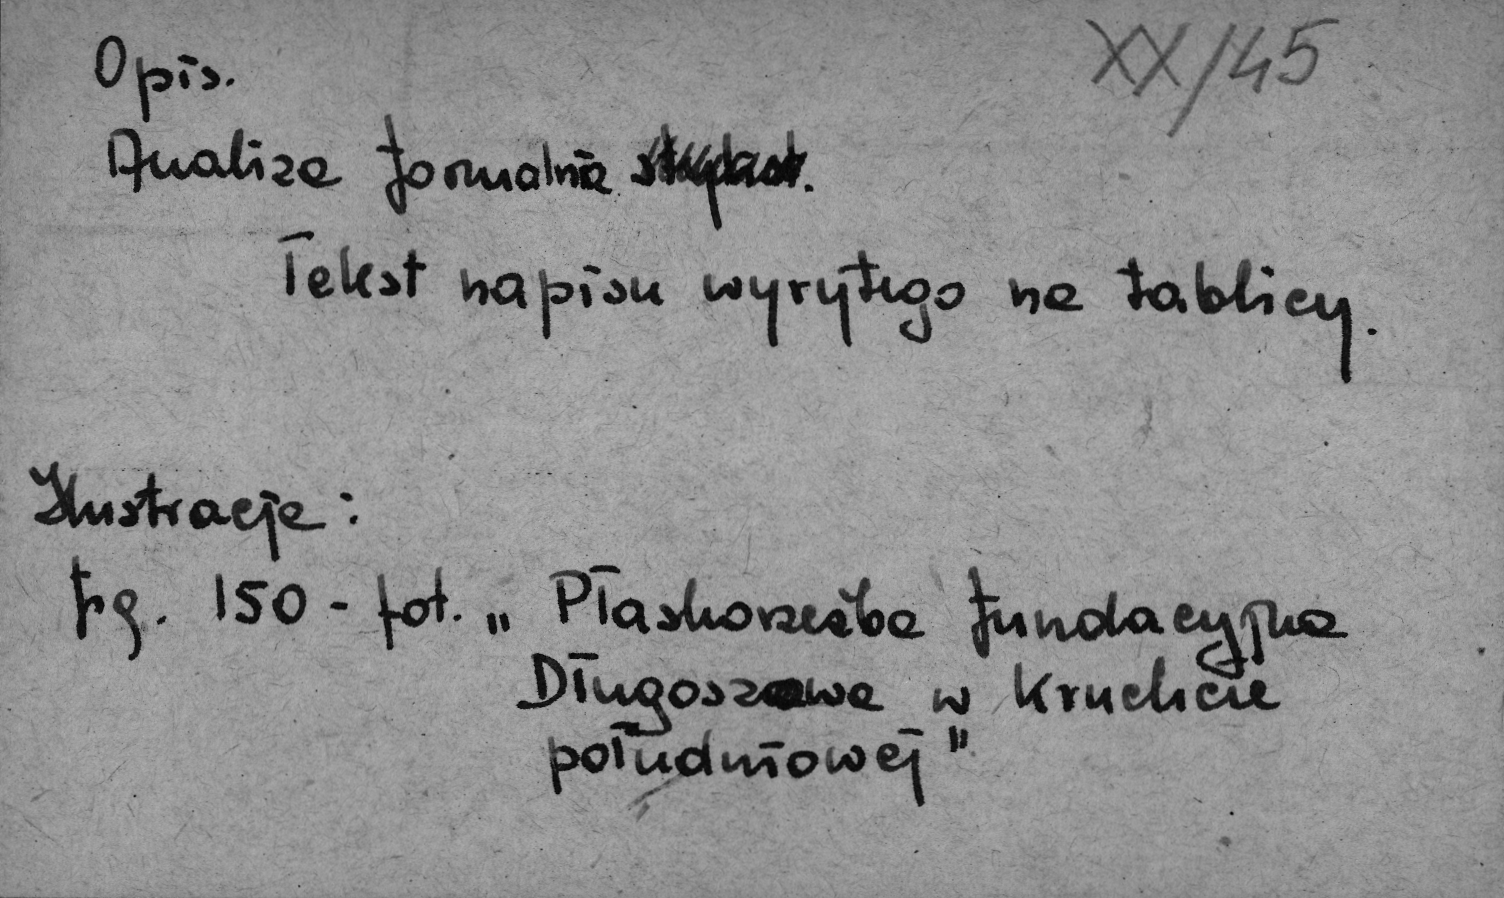 XX/45
Opis.
Analiza formalna
Tekst napisu wyrytego na tablicy.
Ilustracje:
fig. 150 - fot. „Płaskorzeźba fundacyjna
Długoszowa w kruchcie
południowej"